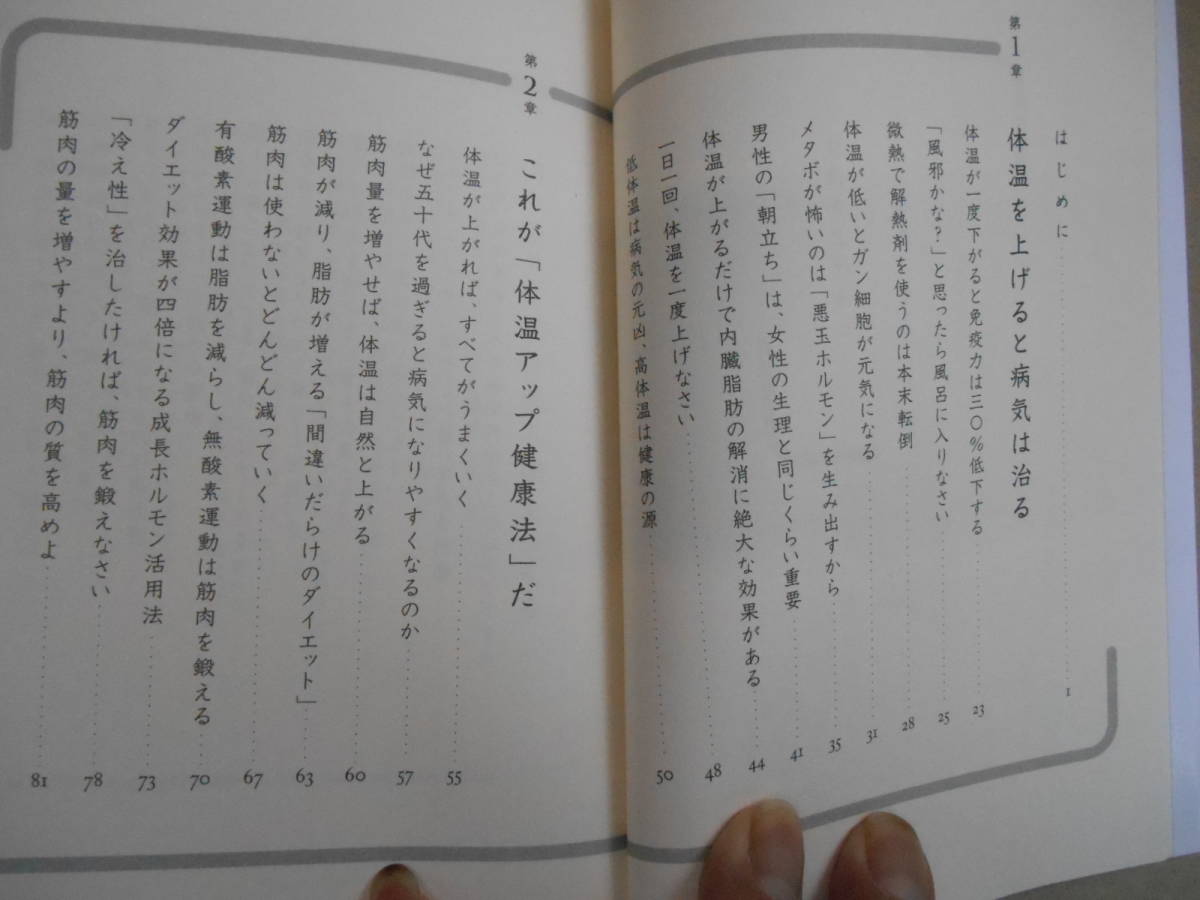 はじめに 1
第1章 体温を上げると病気は治る
体温が一度下がると免疫力は三〇%低下する 23
「風邪かな?」と思ったら風呂に入りなさい 25
微熱で解熱剤を使うのは本末転倒 28
体温が低いとガン細胞が元気になる 31
メタボが怖いのは「悪玉ホルモン」を生み出すから 35
男性の「朝立ち」は、女性の生理と同じくらい重要 41
体温が上がるだけで内臓脂肪の解消に絶大な効果がある 44
一日一回、体温を一度上げなさい 48
低体温は病気の元凶、高体温は健康の源 50
第2章 これが「体温アップ健康法」だ
体温が上がれば、すべてがうまくいく 55
なぜ五十代を過ぎると病気になりやすくなるのか 57
筋肉量を増やせば、体温は自然と上がる 60
筋肉が減り、脂肪が増える「間違いだらけのダイエット」 63
筋肉は使わないとどんどん減っていく 67
有酸素運動は脂肪を減らし、無酸素運動は筋肉を鍛える 70
ダイエット効果が四倍になる成長ホルモン活用法 73
「冷え性」を治したければ、筋肉を鍛えなさい 78
筋肉の量を増やすより、筋肉の質を高めよ 81